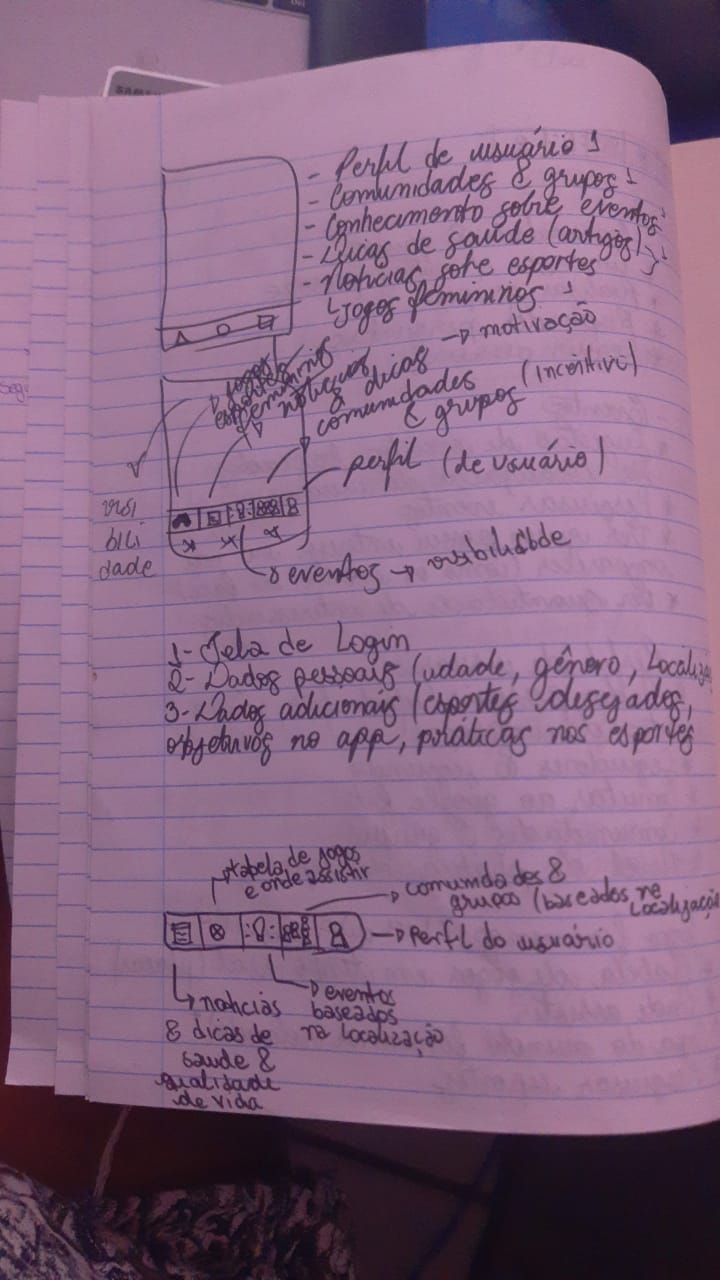 SAMS
- Perfil de usuário
- Comunidades & grupos
- Conhecimento sobre eventos
- Dicas de saúde (artigos)
- Notícias sobre esportes
↳ Jogos femininos
→ jogos
esportes
femininos
→ notícias
& dicas → motivação
comunidades (incentivi)
& grupos
perfil (de usuário)
visi
bili
dade
→ eventos → visibilidade
1- Tela de Login
2- Dados pessoais (idade, gênero, Localiza
3- Dados adicionais (esportes desejados,
objetivos no app, práticas nos esportes
tabela de jogos
e onde assistir
→ comunidades &
grupos (baseados na
Localização
→ Perfil do usuário
↳ notícias
& dicas de
saude &
qualidade
de vida
→ eventos
baseados
na localização
Seg